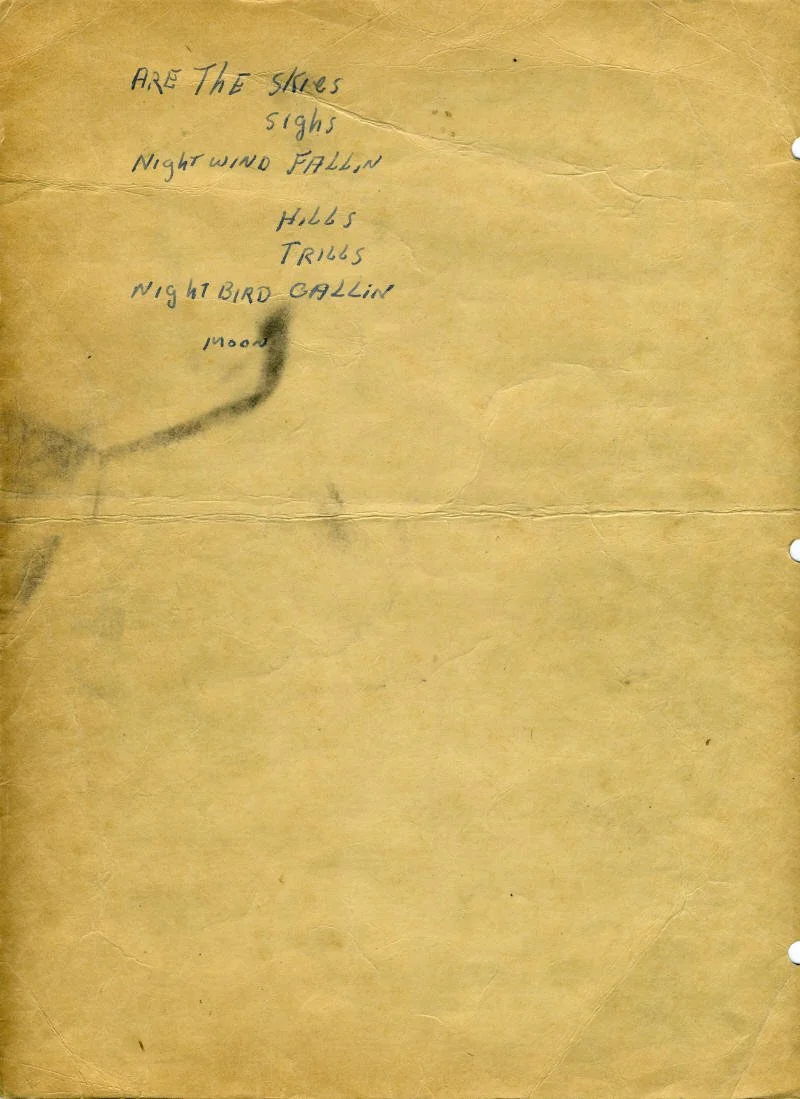 ARE ThE SKies
sighs
Night WIND FALLIN
HILLS
TRILLS
Night BIRD CALLIN
MOON